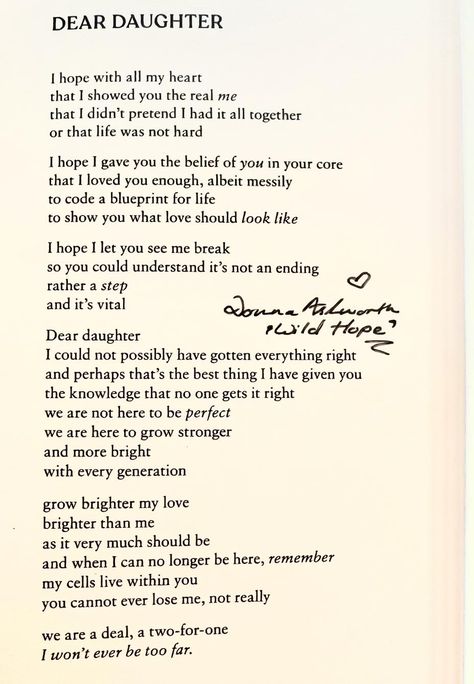 DEAR DAUGHTER
I hope with all my heart
that I showed you the real me
that I didn't pretend I had it all together
or that life was not hard
I hope I gave you the belief of you in your core
that I loved you enough, albeit messily
to code a blueprint for life
to show you what love should look like
I hope I let you see me break
so you could understand it's not an ending
rather a step
and it's vital
Donna Ashworth
'Wild Hope'
Dear daughter
I could not possibly have gotten everything right
and perhaps that's the best thing I have given you
the knowledge that no one gets it right
we are not here to be perfect
we are here to grow stronger
and more bright
with every generation
grow brighter my love
brighter than me
as it very much should be
and when I can no longer be here, remember
my cells live within you
you cannot ever lose me, not really
we are a deal, a two-for-one
I won't ever be too far.